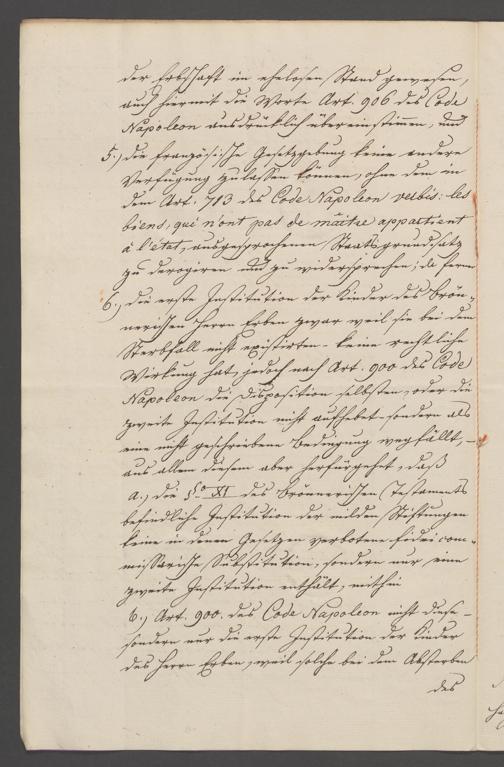 der Erbschaft im ehelosen Stand gewesen,
auch hiermit die Worte Art. 906 des Code
Napoleon ausdrücklich übereinstimmen, und
5., die französische Gesetzgebung keine andere
Verfügung zulassen können, ohne dem in
dem Art. 713 des Code Napoleon verbis: les
biens, qui n'ont pas de maître appartient
à l'état, ausgesprochenen Staatsgrundsatz
zu derogiren und zu widersprechen; da ferner
6., die erste Institution der Kinder des Brön-
nerischen Herrn Erben zwar weil sie bei dem
Sterbfall nicht existirten – keine rechtliche
Wirkung hat, jedoch nach Art. 900 des Code
Napoleon die Disposition selbsten, oder die
zweite Institution nicht aufhebet – sondern als
eine nicht geschriebene Bedingung wegfällt, –
aus allem diesem aber herfürgehet, daß
a., die §o XI des Brönnerischen Testaments
befindliche Institution der milden Stiftungen
keine in denen Gesetzen verbotene fidei com-
missarische Substitution, sondern nur eine
zweite Institution enthält, mithin
b.) Art. 900. des Code Napoleon nicht diese –
sondern nur die erste Institution der Kinder
des Herrn Erben, weil solche bei dem Absterben
des